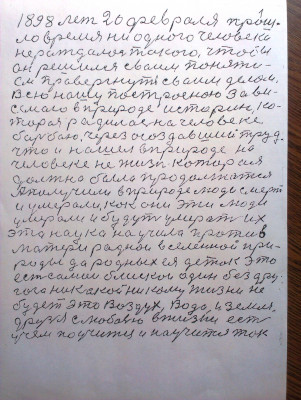 1898 лет 20 февраля прош-
ло время ни одного человека
не раждалося такого, чтобы
он решился своим поняти-
ем правергнуть своим делом.
Всю нашу построеною Зави-
симаю в природе истории, ко-
торая радилась на человеке
барбою, через осоздавший труд.
что и нашел в природе на
человеке не жизн. которая
должна была продолжатся
А получили в природе люди смерт
и умерали, как они эти люди
умерали и будут умерат их
эта наука научила против
матери радной вселенной при-
роды да родных ея деток Это
ест самии близкои один без дру-
гога никакой никому жизни не
будет это Воздух, Вода, и земля,
друзя с любовю в жизни ест
у кем поучится и научится так